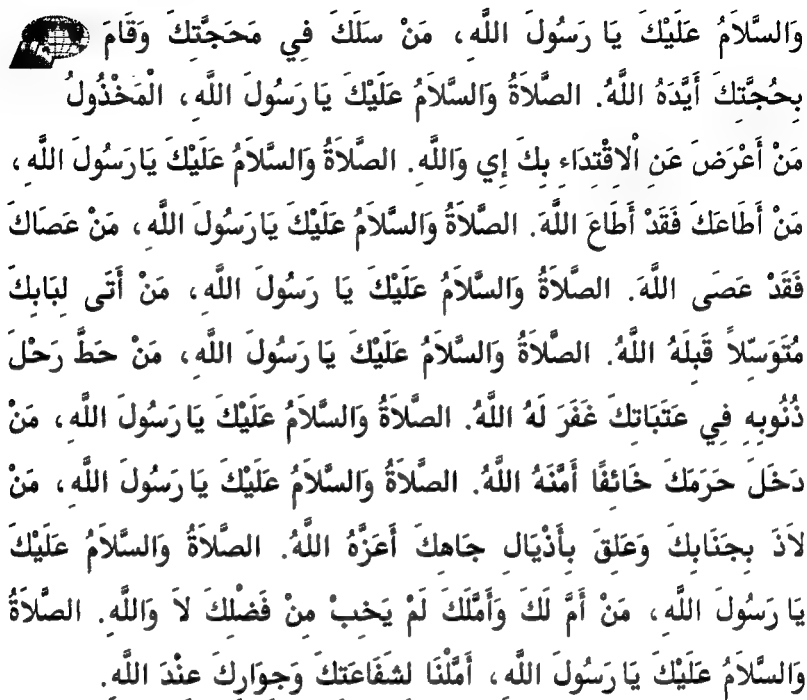 وَالسَّلاَمُ عَلَيْكَ يَا رَسُولَ اللَّهِ، مَنْ سَلَكَ فِي مَحَجَّتِكَ وَقَامَ
بِحُجَّتِكَ أَيَّدَهُ اللَّهُ. الصَّلاَةُ وَالسَّلاَمُ عَلَيْكَ يَا رَسُولَ اللَّهِ، الْمَخْذُولُ
مَنْ أَعْرَضَ عَنِ الْاِقْتِدَاءِ بِكَ إِي وَاللَّهِ. الصَّلاَةُ وَالسَّلاَمُ عَلَيْكَ يَا رَسُولَ اللَّهِ،
مَنْ أَطَاعَكَ فَقَدْ أَطَاعَ اللَّهَ. الصَّلاَةُ وَالسَّلاَمُ عَلَيْكَ يَا رَسُولَ اللَّهِ، مَنْ عَصَاكَ
فَقَدْ عَصَى اللَّهَ. الصَّلاَةُ وَالسَّلاَمُ عَلَيْكَ يَا رَسُولَ اللَّهِ، مَنْ أَتَى لِبَابِكَ
مُتَوَسِّلاً قَبِلَهُ اللَّهُ. الصَّلاَةُ وَالسَّلاَمُ عَلَيْكَ يَا رَسُولَ اللَّهِ، مَنْ حَطَّ رَحْلَ
ذُنُوبِهِ فِي عَتَبَاتِكَ غَفَرَ لَهُ اللَّهُ. الصَّلاَةُ وَالسَّلاَمُ عَلَيْكَ يَا رَسُولَ اللَّهِ، مَنْ
دَخَلَ حَرَمَكَ خَائِفًا أَمَّنَهُ اللَّهُ. الصَّلاَةُ وَالسَّلاَمُ عَلَيْكَ يَا رَسُولَ اللَّهِ، مَنْ
لاَذَ بِجَنَابِكَ وَعَلِقَ بِأَذْيَالِ جَاهِكَ أَعَزَّهُ اللَّهُ. الصَّلاَةُ وَالسَّلاَمُ عَلَيْكَ
يَا رَسُولَ اللَّهِ، مَنْ أَمَّ لَكَ وَأَمَّلَكَ لَمْ يَخِبْ مِنْ فَضْلِكَ لاَ وَاللَّهِ. الصَّلاَةُ
وَالسَّلاَمُ عَلَيْكَ يَا رَسُولَ اللَّهِ، أَمَّلْنَا لِشَفَاعَتِكَ وَجِوَارِكَ عِنْدَ اللَّهِ.